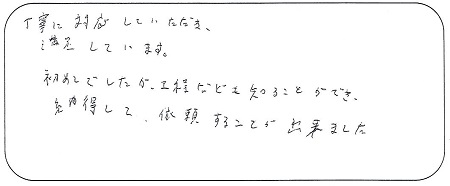 丁寧に対応していただき、
満足しています。
初めてでしたが、工程なども知ることができ、
納得して、依頼することが出来ました